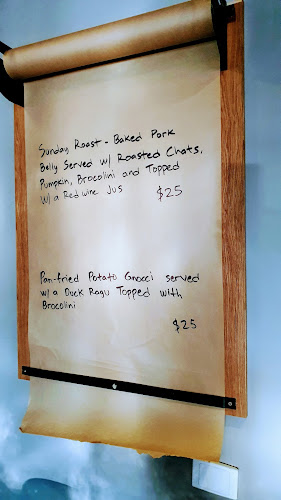 Sunday Roast - Baked Pork
Belly Served w/ Roasted Chats,
Pumpkin, Brocolini and Topped
w/ a Red wine Jus $25
Pan-fried Potato Gnocci served
w/ a Duck Ragu Topped with
Brocolini
$25